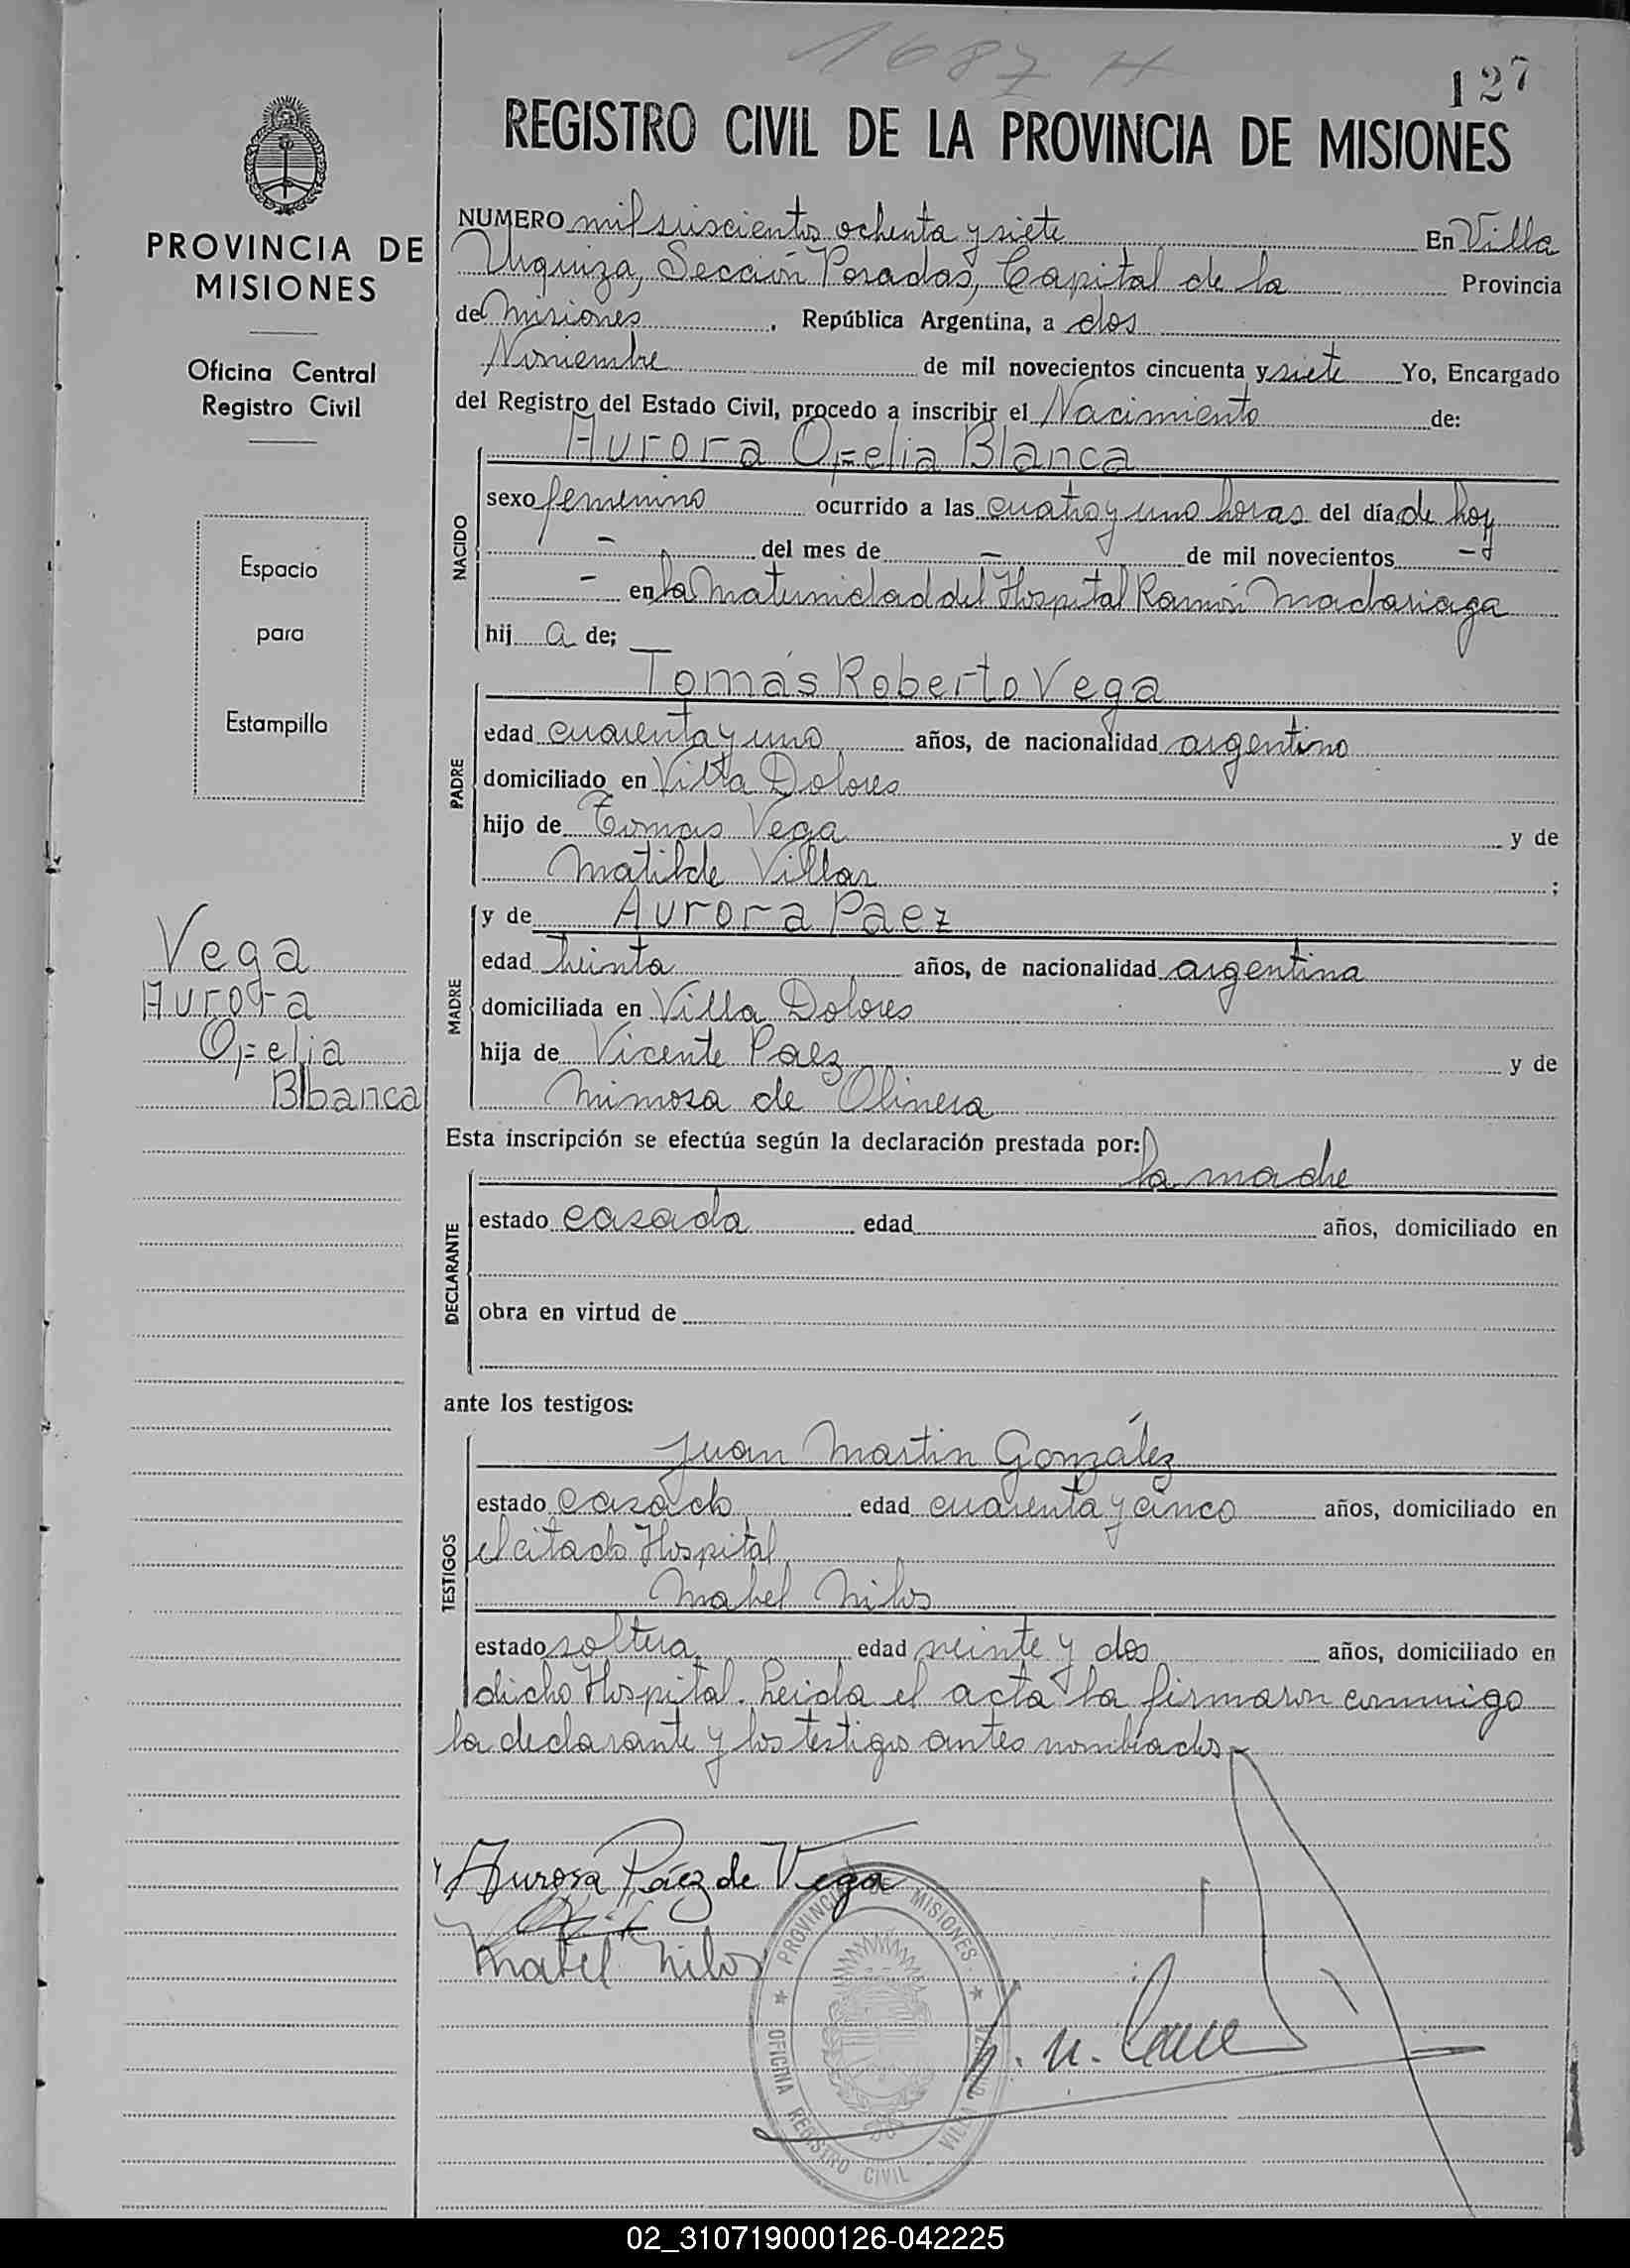 1687 H
127
REGISTRO CIVIL DE LA PROVINCIA DE MISIONES
PROVINCIA DE
MISIONES
Oficina Central
Registro Civil
Espacio
para
Estampilla
Vega
Aurora
Ofelia
Blbanca
NUMERO mil suiscientos ochenta y siete En Villa
Urquiza, Sección Posadas, Capital de la Provincia
de Misiones. República Argentina, a dos
Noviembre de mil novecientos cincuenta y siete Yo, Encargado
del Registro del Estado Civil, procedo a inscribir el Nacimiento de:
Aurora Ofelia Blanca
NACIDO
sexo femenino ocurrido a las cuatro y uno horas del día de hoy
- del mes de - de mil novecientos -
- en la Maternidad del Hospital Ramón Madariaga
hij a de;
Tomás Roberto Vega
PADRE
edad cuarenta y uno años, de nacionalidad argentino
domiciliado en Villa Dolores
hijo de Tomas Vega y de
Matilde Villar ;
y de Aurora Paez
MADRE
edad treinta años, de nacionalidad argentina
domiciliada en Villa Dolores
hija de Vicente Paez y de
Mimosa de Olivera
Esta inscripción se efectúa según la declaración prestada por:
la madre
DECLARANTE
estado casada edad años, domiciliado en
obra en virtud de
ante los testigos:
Juan Martin González
TESTIGOS
estado casado edad cuarenta y cinco años, domiciliado en
el citado Hospital
Mabel Nilos
estado soltera edad veinte y dos años, domiciliado en
dicho Hospital. Leida el acta la firmaron conmigo
la declarante y los testigos antes nombrados
Aurora Páez de Vega
Mabel Nilos
PROVINCIA DE MISIONES
OFICINA REGISTRO CIVIL VILLA
02_310719000126-042225